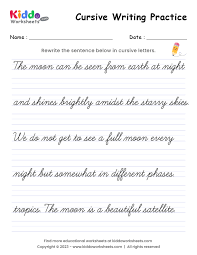 Kiddo
Worksheets.com
Cursive Writing Practice
Name : Date :
Rewrite the sentence below in cursive letters.
The moon can be seen from earth at night
and shines brightly amidst the starry skies.
We do not get to see a full moon every
night but somewhat in different phases
tropics. The moon is a beautiful satellite.
Find more educational worksheets at kiddoworksheets.com
Copyright © 2023 - www.kiddoworksheets.com All rights reserved